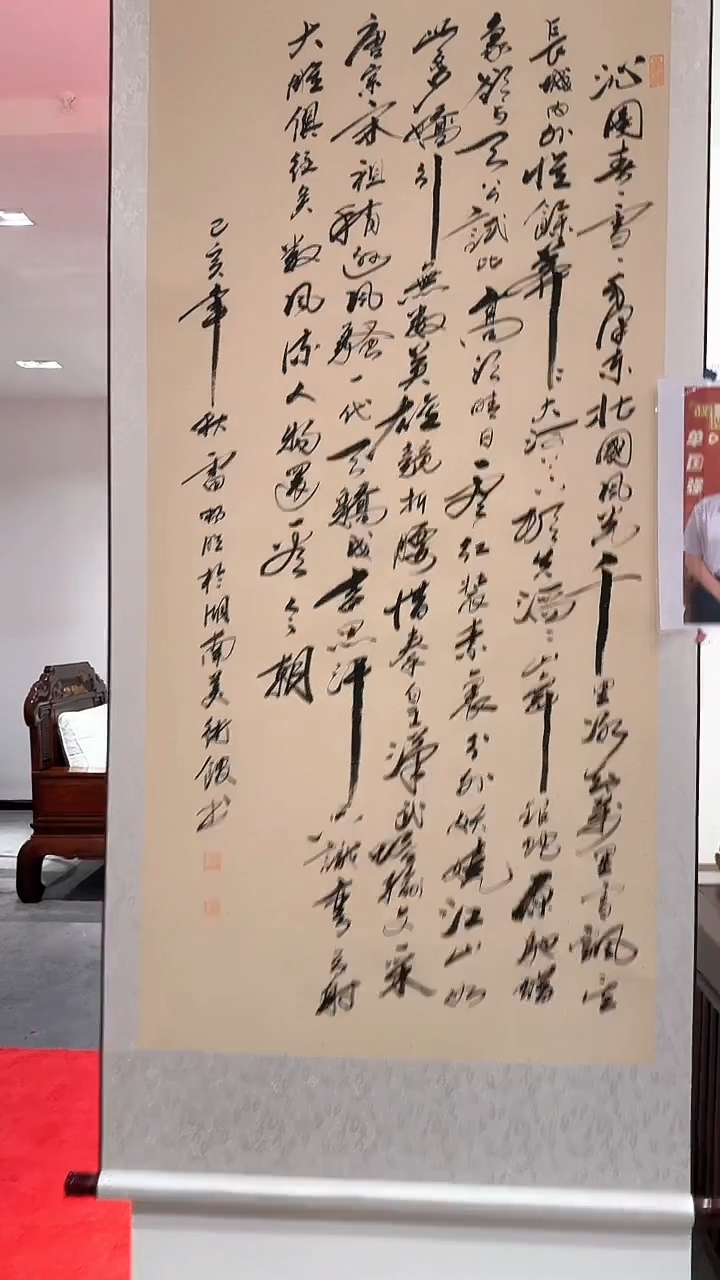 沁園春·雪·毛澤東北國風光千里冰封萬里雪飄望
長城內外惟餘莽〻大河上下頓失滔〻山舞銀蛇原馳蠟
象欲與天公試比高須晴日看紅裝素裹分外妖嬈江山如
此多嬌引無數英雄競折腰惜秦皇漢武略輸文采
唐宗宋祖稍遜風騷一代天驕成吉思汗只識彎弓射
大雕俱往矣數風流人物還看今朝
己亥年秋雷於湖南美術館書
单国强